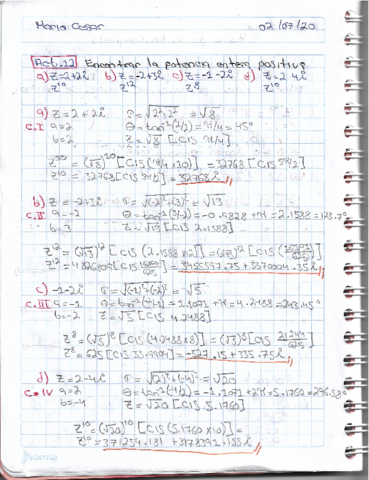 Mario Cesar 02/07/20
Act. 12 Encontrar la potencia entera positiva
a) z=2+2i b) z=-2+3i c) z=-1-2i d) z=2-4i
z¹⁰ z¹² z⁸ z¹⁰
a) z=2+2i r=√2²+2² =√8
C.I a=2 θ=tan⁻¹(2/2)=π/4=45°
b=2 z=√8 [CIS π/4]
z¹⁰=(√8)¹⁰[CIS(π/4×10)]=32768[CIS 5π/2]
z¹⁰=32768[CIS 5π/2]=32768i
b) z=-2+3i r=√(-2)²+(3)²=√13
C.II a=-2 θ=tan⁻¹(3/-2)=-0.9828+π=2.1588=123.7°
b=3 z=√13 [CIS 2.1588]
z¹²=(√13)¹²[CIS(2.1588×12)]=(√13)¹²[CIS
z¹²=4826809[CIS
c) -1-2i r=√(-1)²+(-2)²=√5
C.III a=-1 θ=tan⁻¹(-2/-1)=1.1071+π=4.2488=243.45°
b=-2 z=√5 [CIS 4.2488]
z⁸=(√5)⁸[CIS(4.2488×8)]=(√5)⁸[CIS
z⁸=625[CIS 33.9904]=-527.15+335.75i
d) z=2-4i r=√(2)²+(-4)²=√20
C.IV a=2 θ=tan⁻¹(-4/2)=-1.1071+2π=5.1760=296.58°
b=-4 z=√20 [CIS 5.1760]
z¹⁰=(√20)¹⁰[CIS(5.1760×10)]=
z¹⁰=
Norma